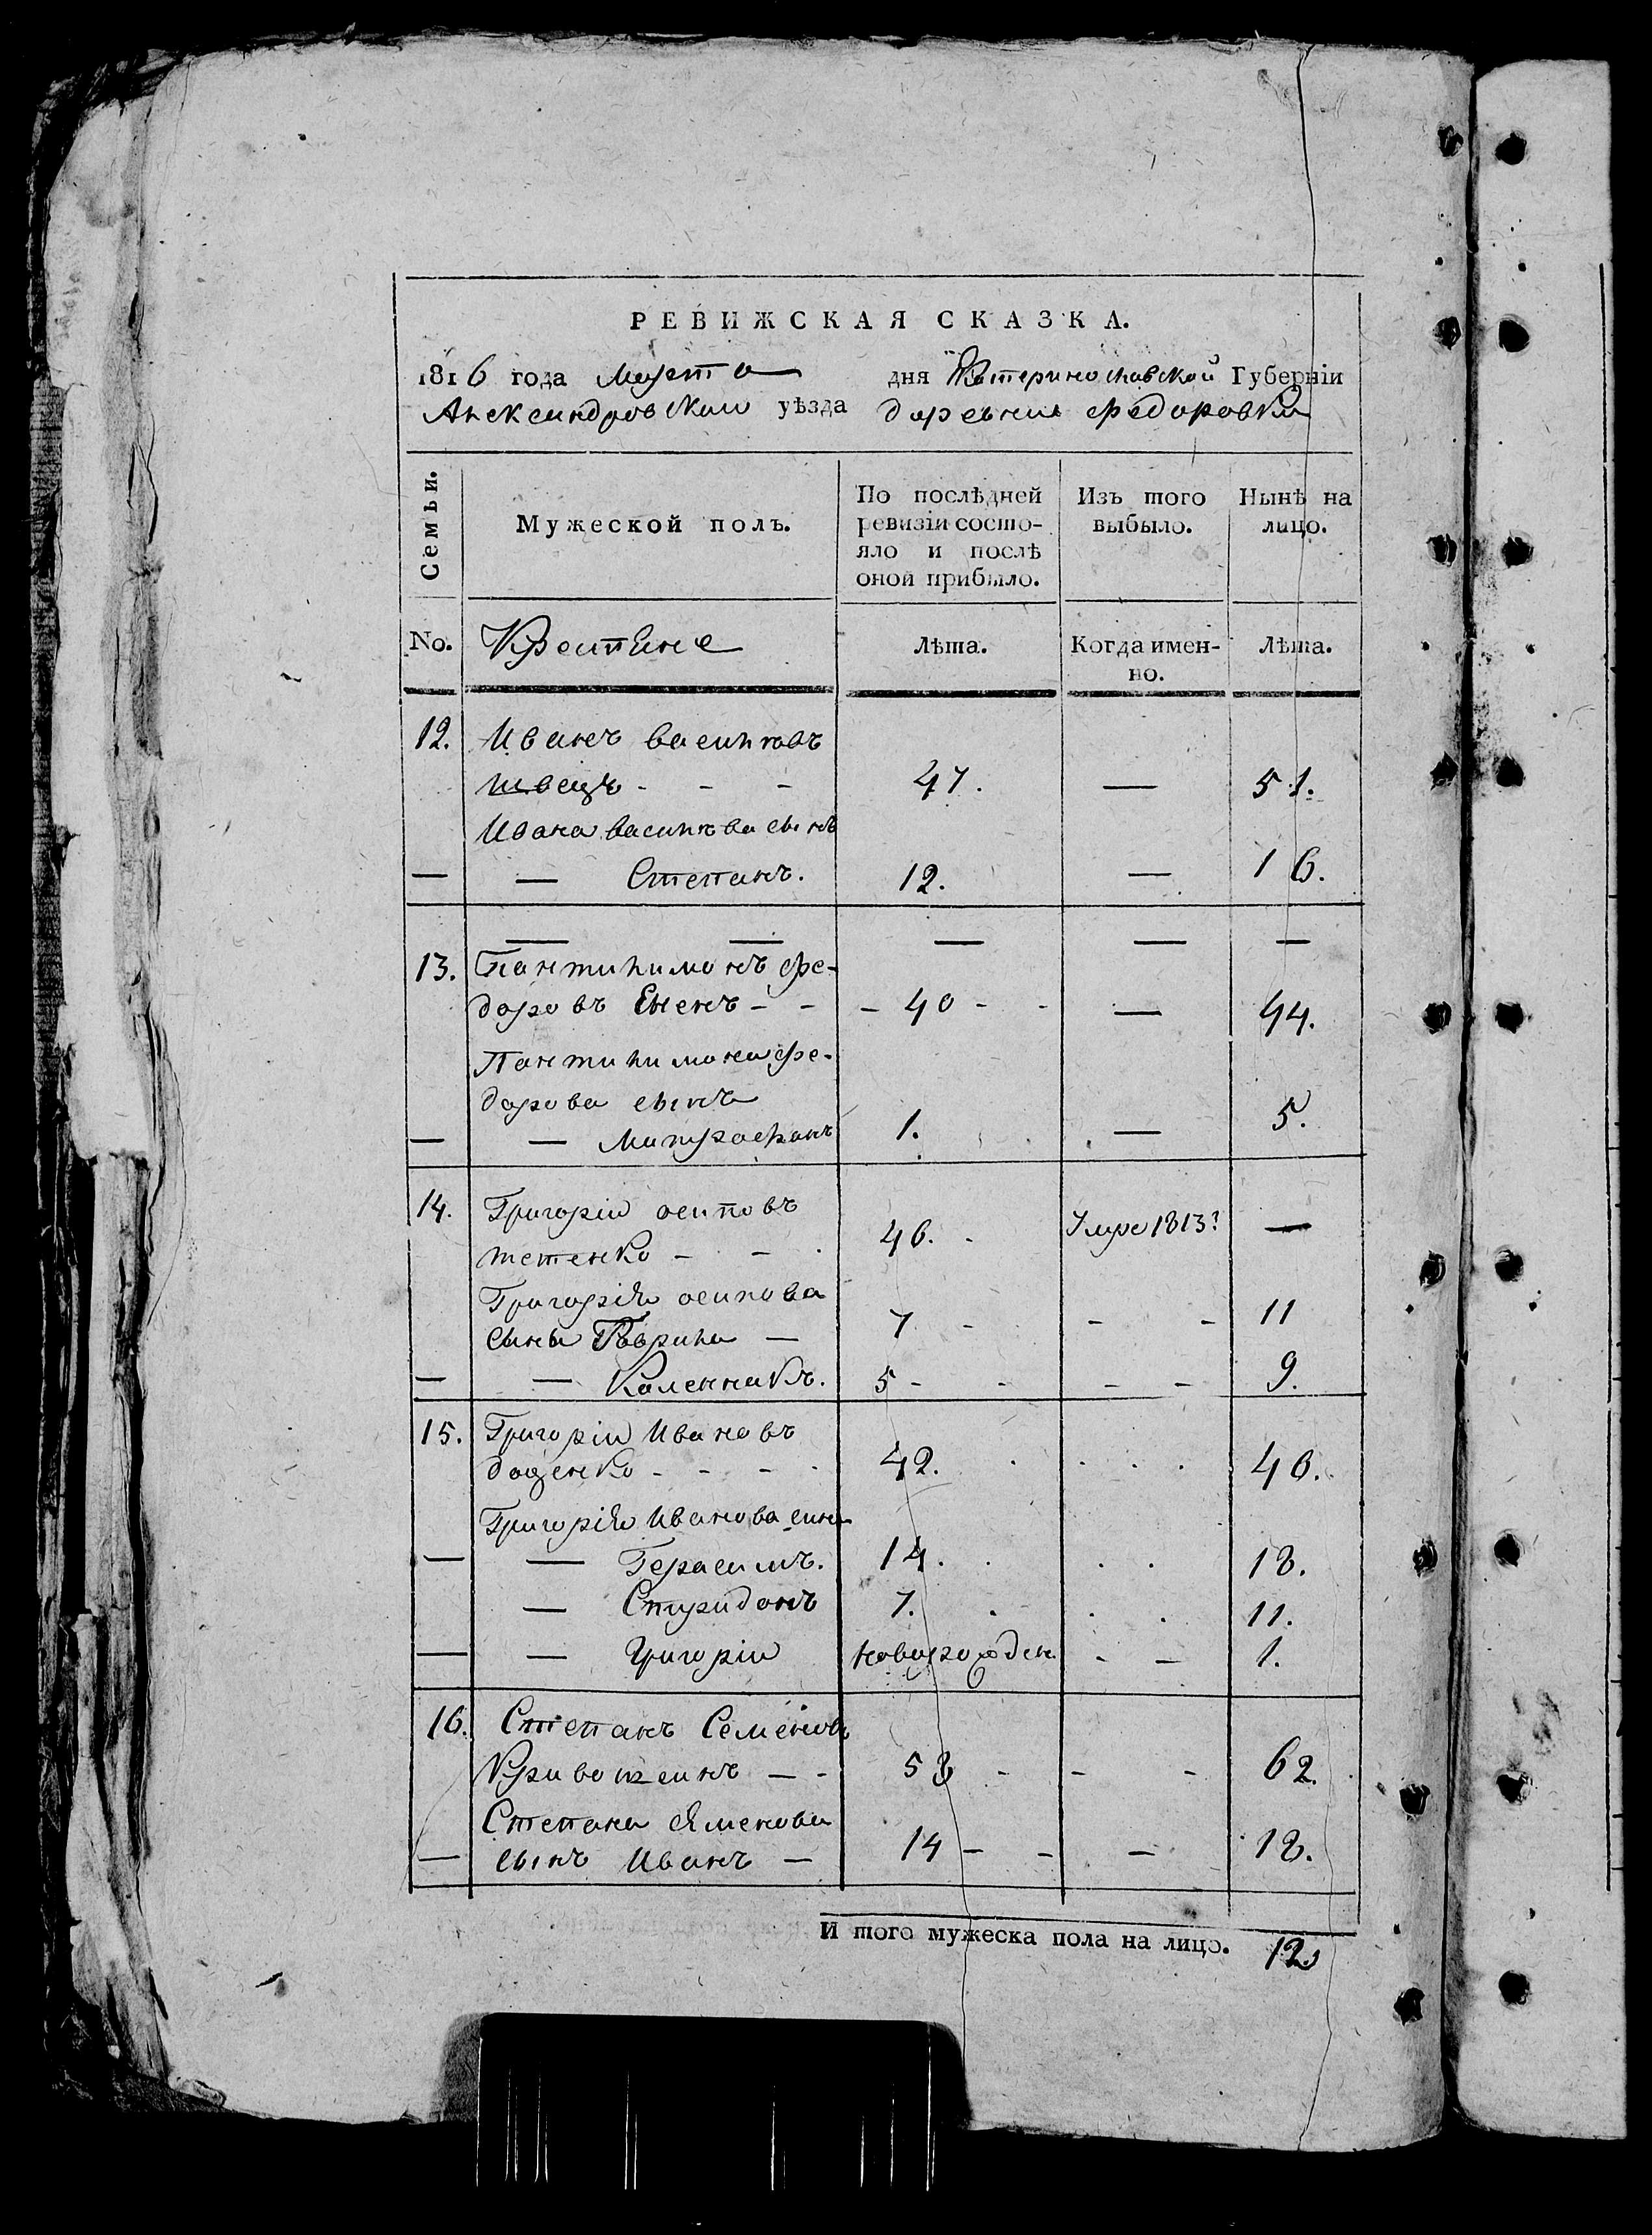 РЕВИЖСКАЯ СКАЗКА.
1816 года Марта дня Екатеринославской Губерніи
Александровскаго уѣзда деревни Федоровки
Семьи.
Мужеской полъ.
По послѣдней ревизіи состояло и послѣ оной прибыло.
Изъ того выбыло.
Нынѣ на лицо.
No. Крестяне Лѣта. Когда именно. Лѣта.
12. Иванъ васильевъ
швецъ - - - 47. — 51.
Ивана васильева сынъ
— — Степанъ. 12. — 16.
— — — — —
13. Пантилимонъ фе-
доровъЕненъ - - - 40 - - — 44.
Пантилимона фе-
дорова сынъ
— — Митрофанъ 1. — 5.
14. Григорій осиповъ
тетенко - - . 46. - Умре 1813: —
Григорія осипова
сыны Гаврила — 7 - - - 11
— — Каленникъ. 5 - - - - 9.
15. Григорій Ивановъ
доценко - - - - 42. . . . . 46.
Григорія Иванова сины
— — Герасимъ. 14. . . . 18.
— Спиридонъ 7. . . . 11.
— — Григорій новорожден. - - 1.
16. Степанъ Семеновъ
Кривошеинъ — - 58 - - - 62.
Степана Семенова
— сынъ Иванъ — 14 - - — 18.
И того мужеска пола на лицо. 12.